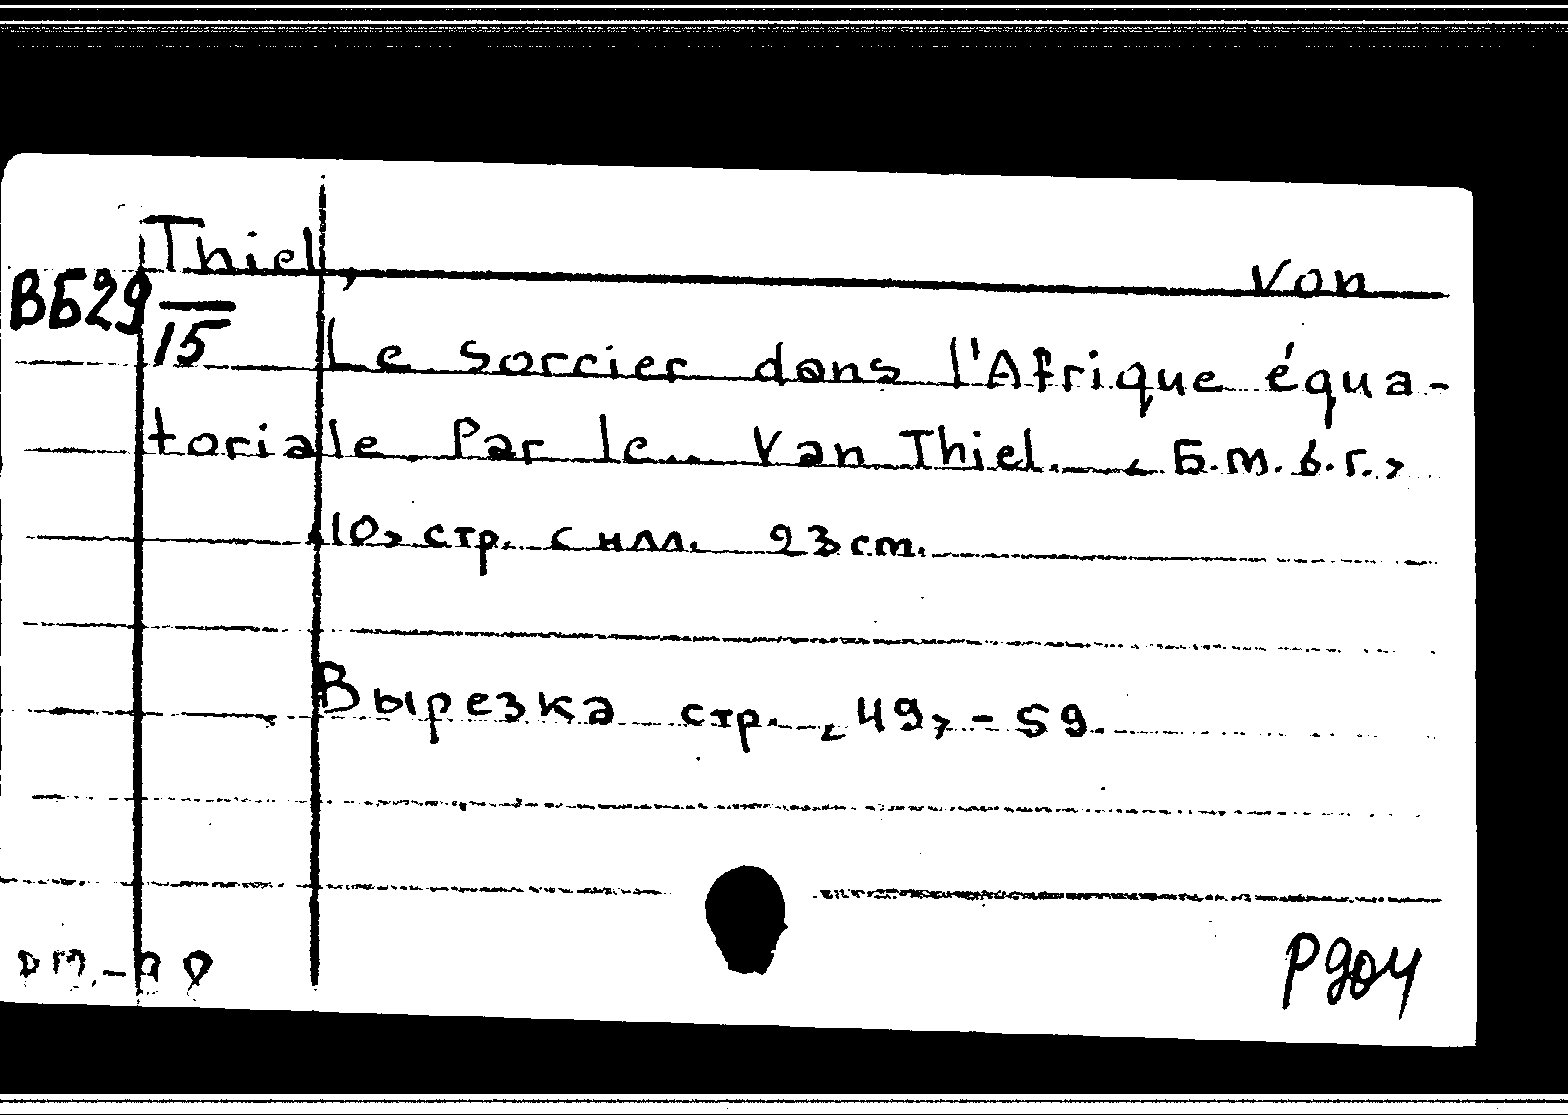 Thiel, von
ВБ29
15
Le sorcier dans l'Afrique équa-
toriale. Par le.. Van Thiel. < Б.m. б.г.>
<10> стр. с илл. 23 cm.
Вырезка стр. <49> - 59.
Р904